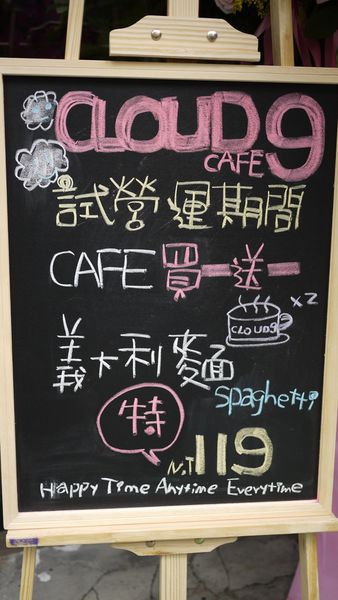 CLOUD 9
CAFE
試營運期間
CAFE 買一送一
CLOUD9 x2
義大利麵
spaghetti
特
N.T 119
Happy Time Anytime Everytime